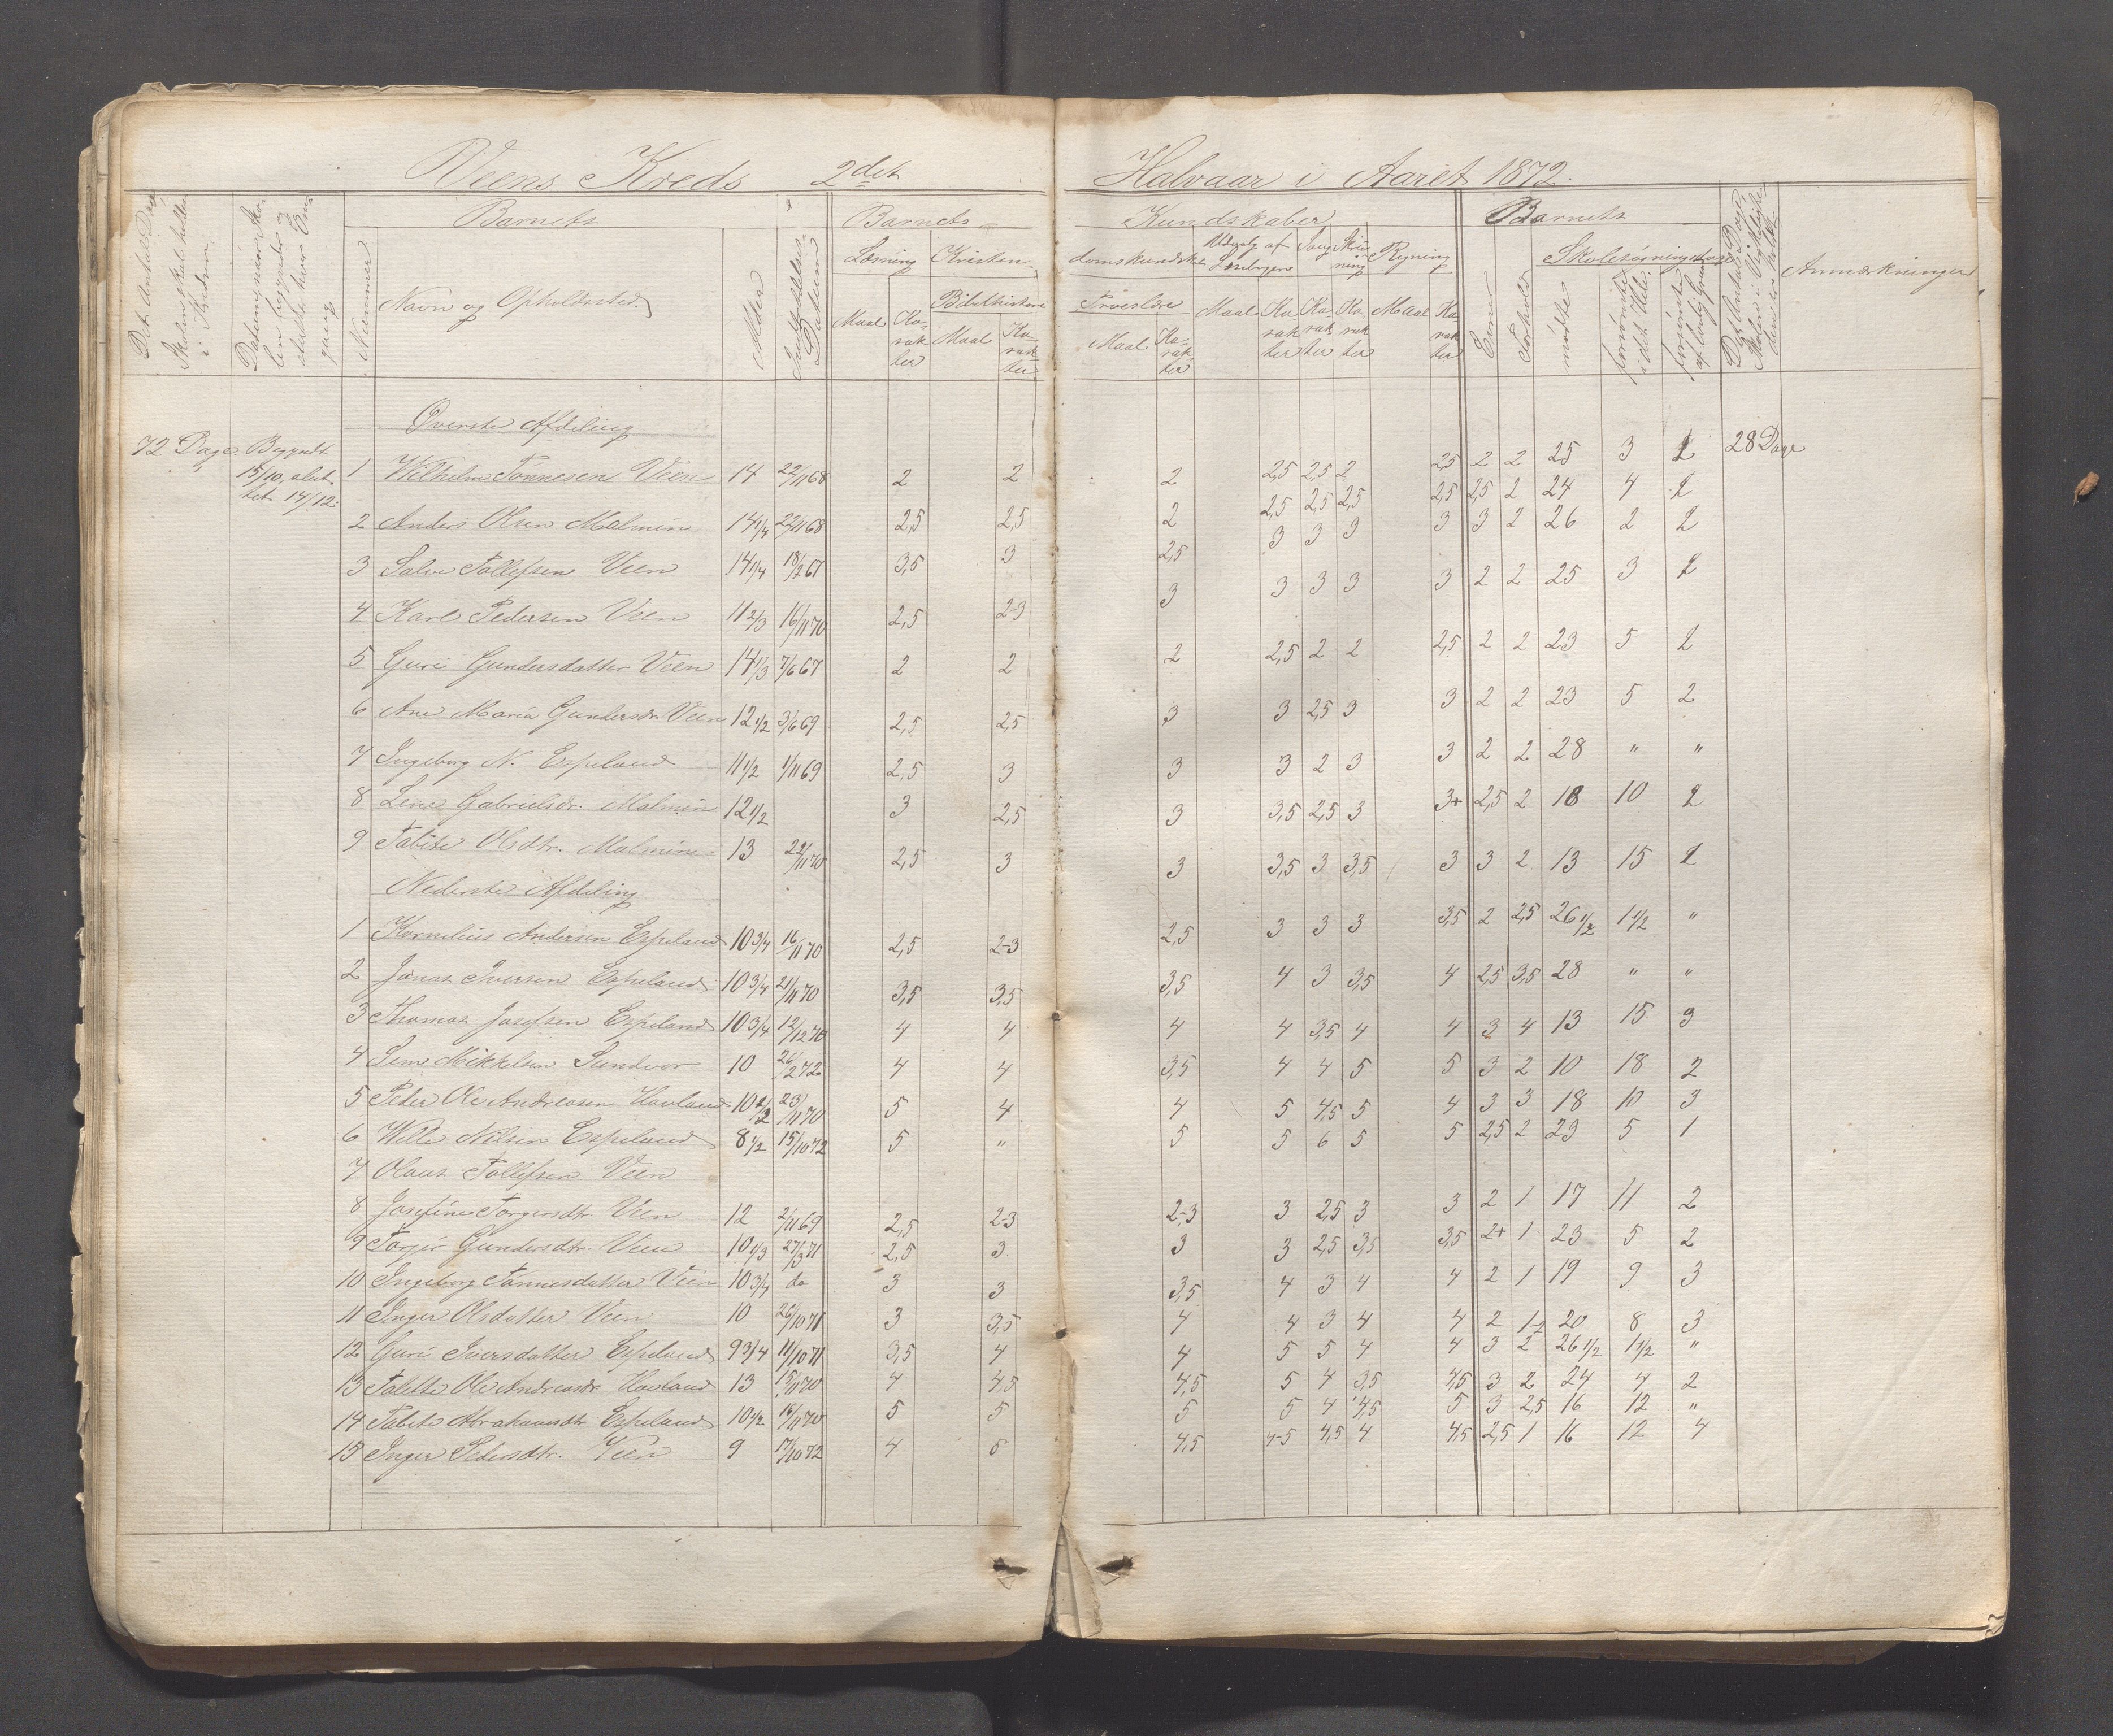 Veens Kreds 2det Halvaar i Aaret 1872.
Barnets Barnets Kundskaber Barnets
Læsning Kristen domskundskab Udvalg af Læsebogen Sang Skriv ning Regning Skolesøgningsdage
Det Antal Dage Skolen skal holdes i Kredsen.
Datum, naar Sko len begyndes og sluttes hver Om gang
Nummer Navn og Opholdssted. Alder Indtrædelses Datum
Bibelhistorie Troeslære
Maal Ka rak ter Maal Ka rak ter Maal Ka rak ter Maal Ka rak ter Ka rak ter Ka rak ter Maal Ka rak ter
Evne Forhold mødte forsømte i det Hele forsømte af lovlig Grund
Det Antal Dage Skolen i Virkeligheden er holdt
Anmærkninger
Øverste Afdeling
72 Dage. Begyndt 15/10, slut tet 14/12. 28 Dage
1 Wilhelm Tønnesen Veen 14 22/11 68 2 2 2 2,5 2,5 2 2,5 2 2 25 3 2
2 Anders Olsen Malmin 14 1/4 22/11 68 2,5 2,5 2 2,5 2,5 2,5 2,5 2,5 2 24 4 2
3 Salve Tollefsen Veen 14 1/4 18/2 67 3,5 3 2,5 3 3 3 3 3 2 26 2 2
4 Karl Pedersen Veen 11 2/3 16/11 70 2,5 2-3 3 3 3 3 3 2 2 25 3 2
5 Guri Gundersdatter Veen 14 1/3 7/6 67 2 2 2 2,5 2 2 2,5 2 2 23 5 2
6 Ane Maria Gundersdr. Veen 12 1/2 3/6 69 2,5 2,5 3 3 2,5 3 3 2 2 23 5 2
7 Ingeborg N. Espeland 11 1/2 1/11 69 2,5 3 3 3 2 3 3 2 2 28 " "
8 Lene Gabrielsdr. Malmin 12 1/2 3 2,5 3 3,5 2,5 3 3+ 2,5 2 18 10 2
9 Tabite Olsdtr. Malmin 13 22/11 70 2,5 3 3 3,5 3 3,5 3 3 2 13 15 2
Nederste Afdeling
1 Kornelius Andersen Espeland 10 3/4 16/11 70 2,5 2-3 2,5 3 3 3 3,5 2 2,5 26 1/2 1 1/2 "
2 Jonas Iversen Espeland 10 3/4 21/11 70 3,5 3,5 3,5 4 3 3,5 4 2,5 3,5 28 " "
3 Thomas Josefsen Espeland 10 3/4 12/12 70 4 4 4 4 3,5 4 4 3 4 13 15 3
4 Sem Mikkelsen Sandvor 10 26/2 72 4 4 3,5 4 4 5 5 3 2 10 18 2
5 Peder Ole Andreasen Havland 10 1/2 23/11 70 5 4 4 5 4,5 5 4 3 3 18 10 3
6 Wille Nilsen Espeland 8 1/2 15/10 72 5 " 5 5 6 5 5 2,5 2 23 5 1
7 Olaus Tollefsen Veen
8 Josefine Torgersdtr. Veen 12 2/11 69 2,5 2-3 2-3 3 2,5 3 3 2 1 17 11 2
9 Torjer Gundersdtr. Veen 10 1/3 27/3 71 2,5 3 3 3 2,5 3,5 3,5 2+ 1 23 5 2
10 Ingeborg Tønnesdatter Veen 10 3/4 do 3 3 3,5 4 3 4 4 2 1 19 9 3
11 Inger Olsdatter Veen 10 26/10 71 3 3,5 4 4 3 4 4 2 1-2 20 8 3
12 Guri Iversdatter Espeland 9 3/4 11/10 71 3,5 4 4 5 5 4 4 3 2 26 1/2 1 1/2 "
13 Talette Ole Andreasdr. Havland 13 15/11 70 4 4,5 4,5 5 4 3,5 4,5 3 2 24 4 2
14 Tabite Abrahamsdtr Espeland 10 1/2 16/11 70 5 5 5 5 4 4,5 5 3 2,5 16 12 "
15 Inger Pedersdtr. Veen 9 17/10 72 4 5 4,5 4-5 4,5 4 4,5 2,5 1 16 12 4